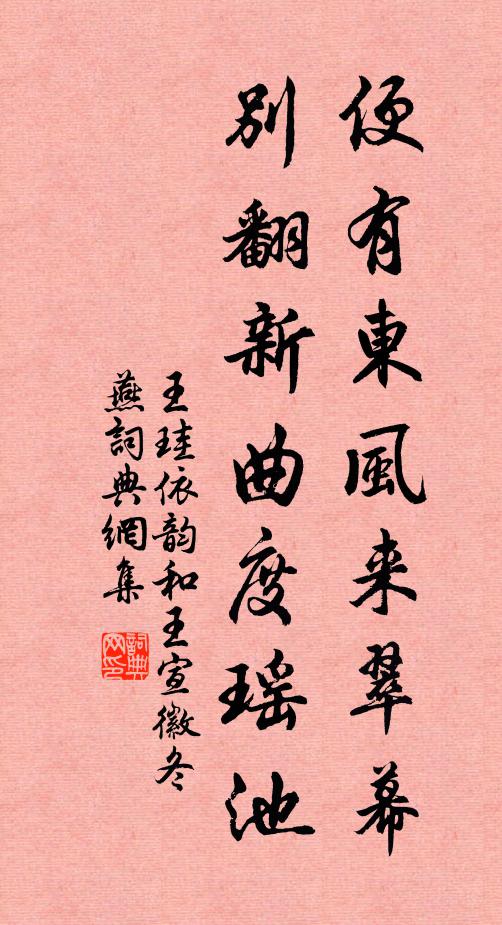 便有東風来翠幕
別翻新曲度瑶池
王珪依韵和王宣徽冬
燕詞典網集
詞典网印